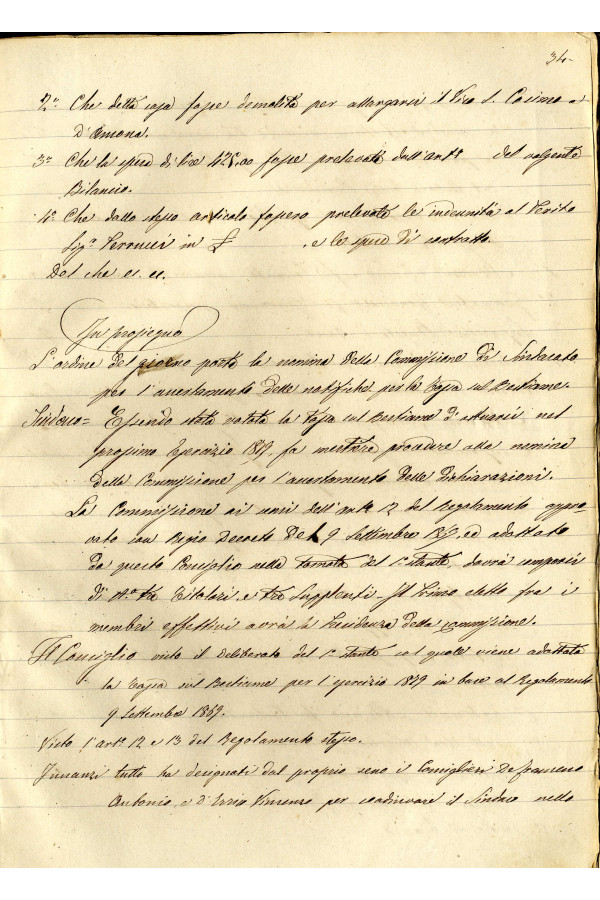 34.
2° Che detta casa fosse demolita per allargarsi il Vico S. Cosimo e
d'Amona.
3° Che la spesa di Lire 425.00 fosse prelevata dall'art° del volgente
Bilancio.
4° Che dallo stesso articolo fossero prelevate le indennità al Perito
Sig.r in £ e le spese di contratto.
Del che ec. ec.
In prosieguo
L'ordine del giorno porta la nomina della Commissione di Sindacato
per l'accertamento delle notifiche per la Tassa sul Bestiame.
Sindaco = Essendo stata votata la Tassa sul Bestiame d'attuarsi nel
prossimo Esercizio 1879, fa mestiere procedere alla nomina
della Commissione per l'accertamento delle Dichiarazioni.
La Commissione ai sensi dell'art. 12 del Regolamento appro-
vato con Regio Decreto Del 9 Settembre ed adottato
da questo Consiglio nella tornata del 1° stante, dovrà comporsi
di N.° tre Titolari, e tre Supplenti - Il primo eletto fra i
membri effettivi avrà la Presidenza della commissione.
Il Consiglio visto il deliberato del 1° stante col quale viene adottata
la Tassa sul Bestiame per l'esercizio 1879 in base al Regolamento
9 Settembre 1869.
Visto l'art.° 12 e 13 del Regolamento stesso.
Innanzi tutto ha designati dal proprio seno i Consiglieri
Antonio, e Vincenzo per coadiuvare il Sindaco nello